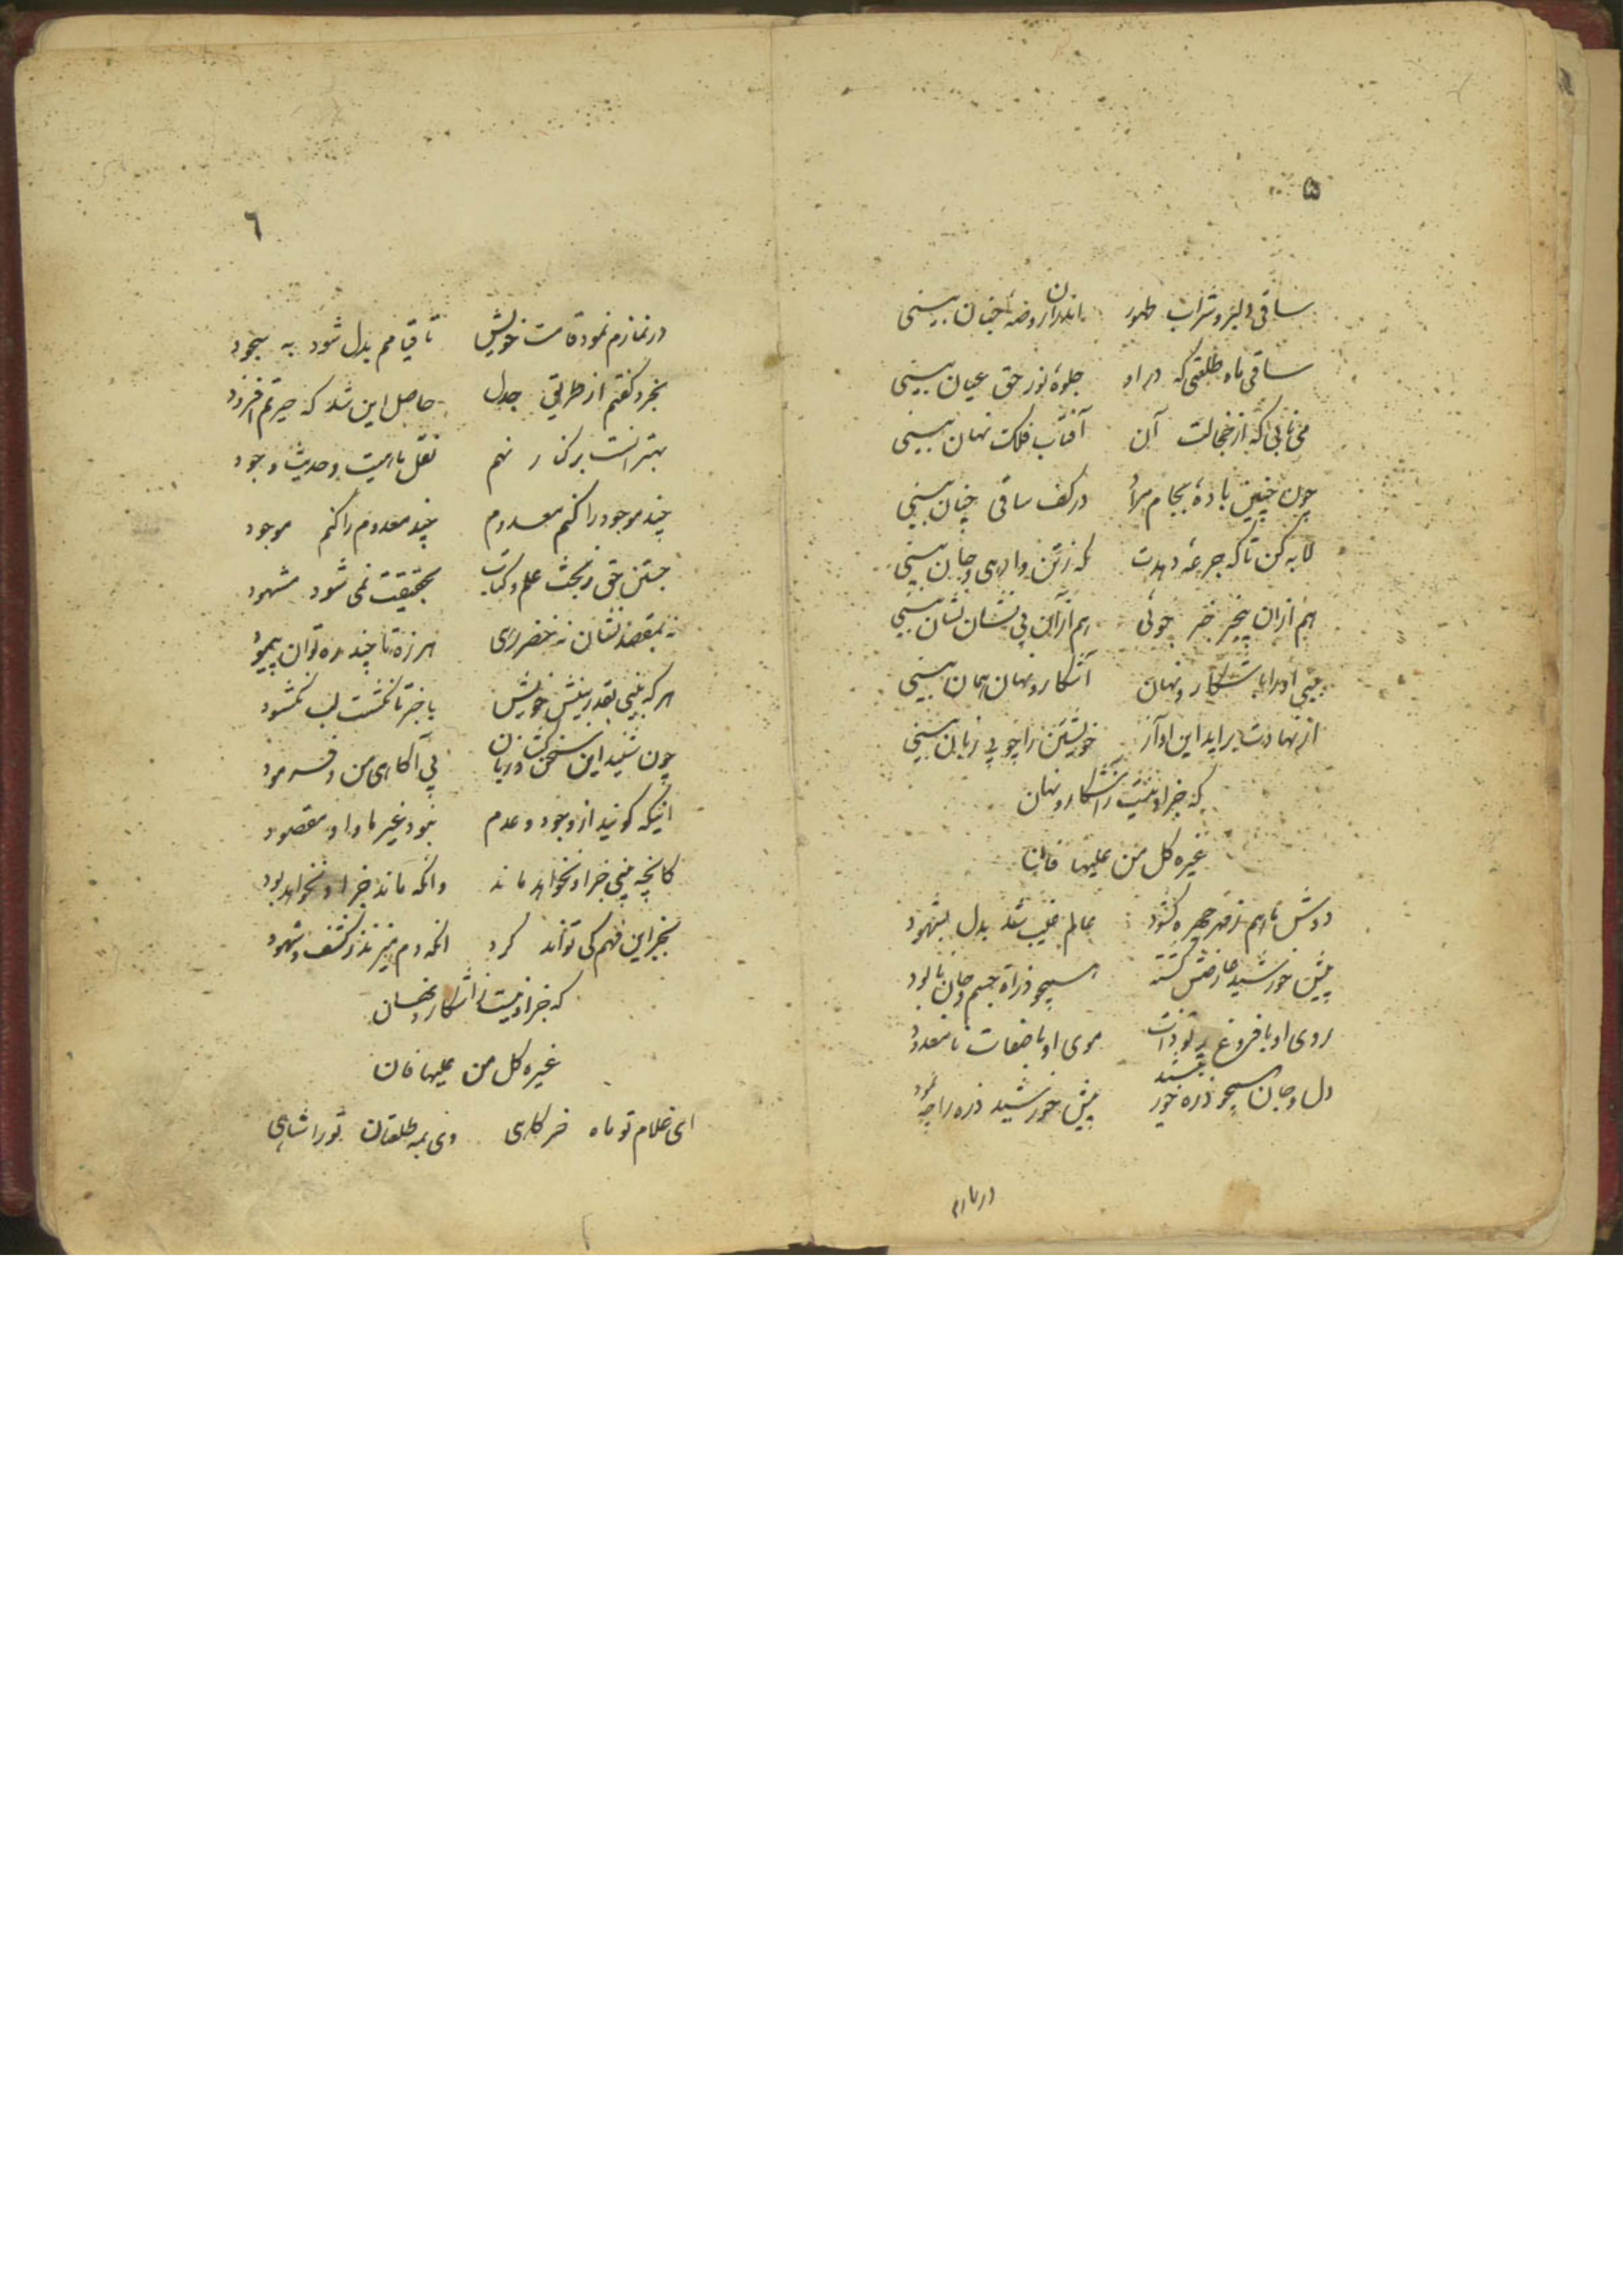 ۵
ساقی دلبر و شراب طهور اندران روضهٔ جنان بینی
ساقی ماه طلعتی که در او جلوهٔ نور حق عیان بینی
می نابی که از خجالت آن آفتاب فلک نهان بینی
چون چنین بادهٔ بجام مراد در کف ساقی چنان بینی
لابه کن تا که جرعهٔ دهدت که زتن وارهی و جان بینی
هم ازان بیخبر خبر جوئی هم ازآن بی نشان نشان بینی
بینی او را باشکار و نهان آشکار و نهان همان بینی
از نهادت براید این آواز خویشتن را چو بی زبان بینی
که جز او نیست آشکار و نهان
غیره کل من علیها فان
دوش ماهم ز مهر چهره کشود عالم غیب شد بدل بشهود
پیش خورشید عارضش گشته همچو ذرات جسم و جان نابود
روی او با فروغ پرتو ذات موی او با صفات نامعدود
دل و جان همچو ذره خور بیشند پیش خورشید ذره را چه نمود
در نمازم
٦
در نمازم نمود قامت خویش تا قیامم بدل شود به سجود
بخرد گفتم از طریق جدل حاصل این شد که حیرتم افزود
بهتر آنست بر کنار نهم نقل ماهیت و حدیث وجود
چند موجود را کنم معدوم چند معدوم را کنم موجود
جستن حق ز بحث علم و کتاب بحقیقت نمی شود مشهود
نه بمقصد نشان نه خضر رهی هرزه تا چند ره توان پیمود
هر که بینی بقدر بینش خویش با خبر تا نگشت لب نگشود
چون شنید این سخن در باز پی آگاهی من و فرمود
اینکه گویند از وجود و عدم نبود غیر ما و او مقصود
کانچه بینی جز او نخواهد ماند وانکه ماند جز او نخواهد بود
بجز این فهم کی تواند کرد انکه دم میزند ز کشف و شهود
که جز او نیست آشکار و نهان
غیره کل من علیها فان
ای غلام تو ماه خرگاهی وی بمه طلعتان تو را شاهی